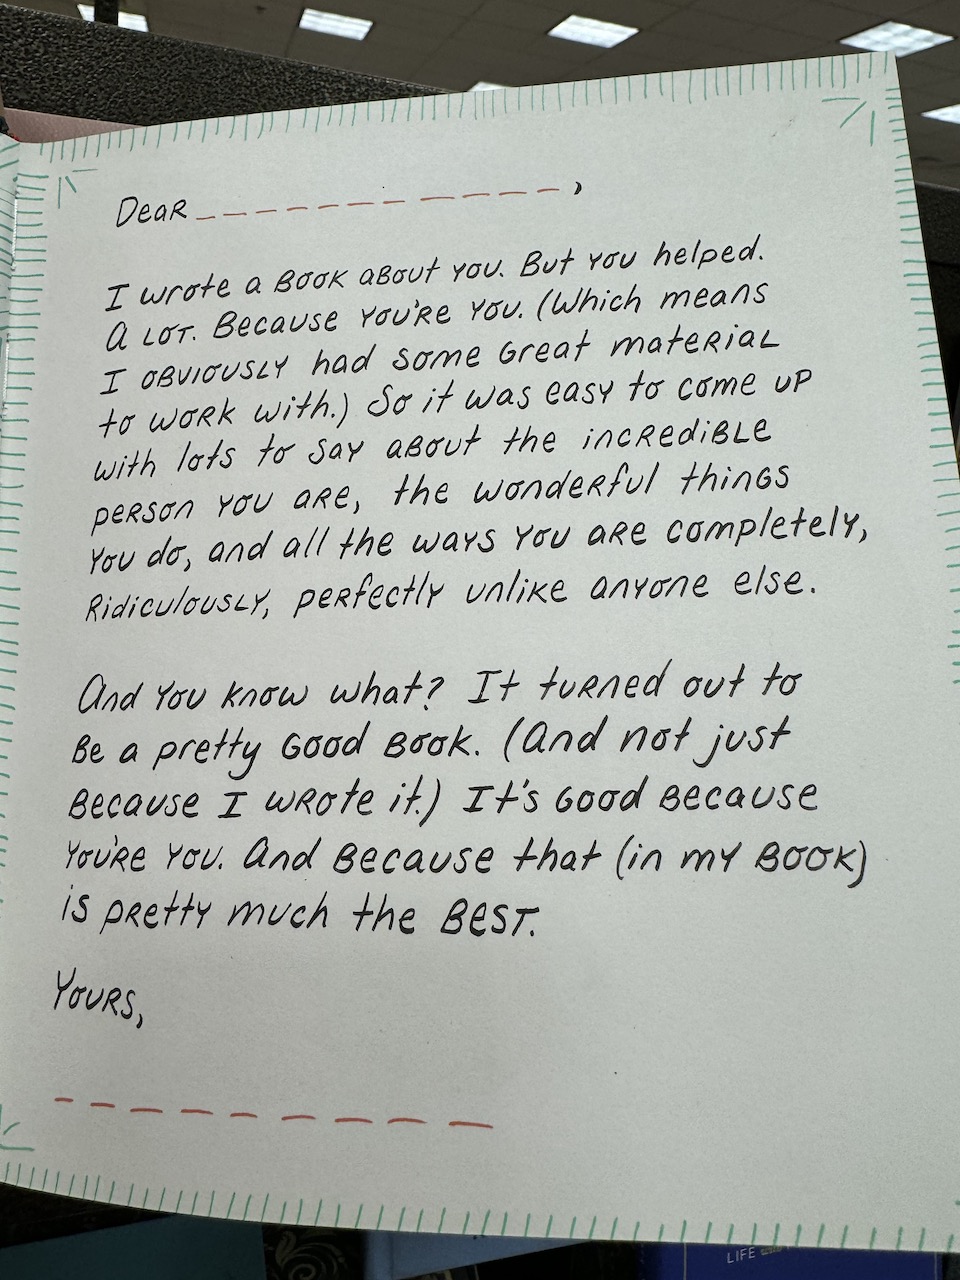 Dear _ _ _ _ _ _ _ _ _ _ _ _,
I wrote a book about you. But you helped.
A lot. Because you're you. (Which means
I obviously had some great material
to work with.) So it was easy to come up
with lots to say about the incredible
person you are, the wonderful things
you do, and all the ways you are completely,
ridiculously, perfectly unlike anyone else.
And you know what? It turned out to
be a pretty good book. (And not just
because I wrote it.) It's good because
you're you. And because that (in my book)
is pretty much the BEST.
Yours,
_ _ _ _ _ _ _ _ _
LIFE